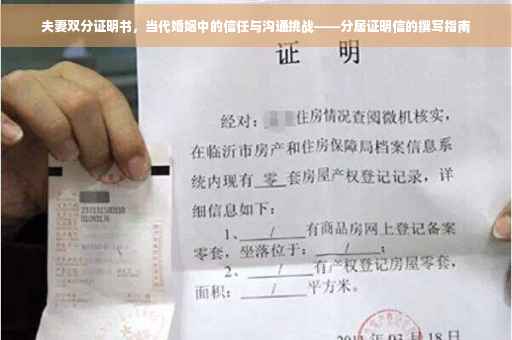 夫妻双分证明书，当代婚姻中的信任与沟通挑战——分居证明信的撰写指南
证 明
经对：住房情况查阅微机核实，
在临沂市房产和住房保障局档案信息系
统内现有 零 套房屋产权登记记录，详
细信息如下：
1、 / 有商品房网上登记备案
零套，坐落位于： / ；
2、 / 有产权登记房屋零套，
面积： / 平方米。
月18日